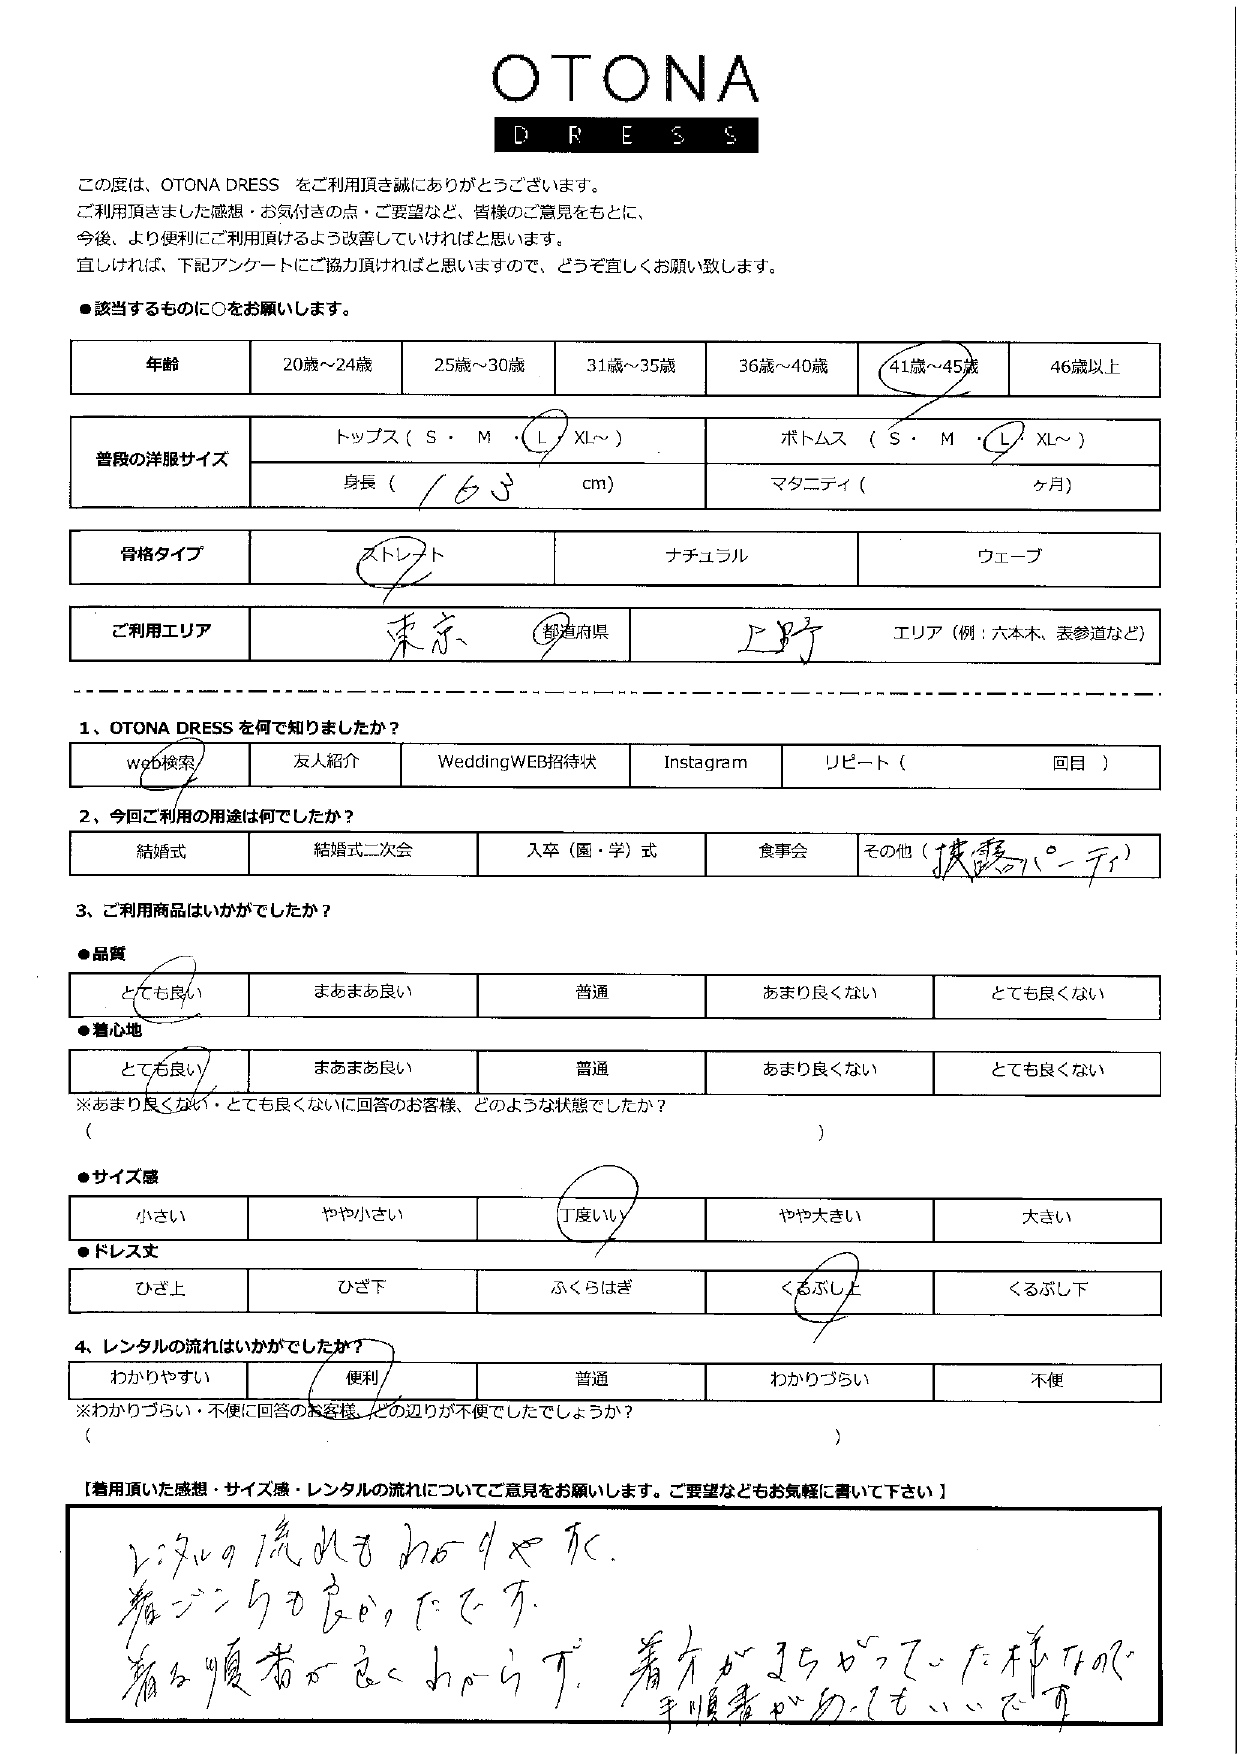 OTONA
DRESS
この度は、OTONA DRESS　をご利用頂き誠にありがとうございます。
ご利用頂きました感想・お気付きの点・ご要望など、皆様のご意見をもとに、
今後、より便利にご利用頂けるよう改善していければと思います。
宜しければ、下記アンケートにご協力頂ければと思いますので、どうぞ宜しくお願い致します。
●該当するものに○をお願いします。
年齢 20歳～24歳 25歳～30歳 31歳～35歳 36歳～40歳 41歳～45歳 46歳以上
普段の洋服サイズ
トップス ( S ・ M ・ L ・ XL～ ) ボトムス ( S ・ M ・ L ・ XL～ )
身長 ( 163 cm) マタニティ ( ヶ月)
骨格タイプ ストレート ナチュラル ウェーブ
ご利用エリア 東京 都道府県 上野 エリア（例：六本木、表参道など）
1、OTONA DRESS を何で知りましたか？
web検索 友人紹介 WeddingWEB招待状 Instagram リピート ( 回目 )
2、今回ご利用の用途は何でしたか？
結婚式 結婚式二次会 入卒（園・学）式 食事会 その他（披露パーティ）
3、ご利用商品はいかがでしたか？
●品質
とても良い まあまあ良い 普通 あまり良くない とても良くない
●着心地
とても良い まあまあ良い 普通 あまり良くない とても良くない
※あまり良くない・とても良くないに回答のお客様、どのような状態でしたか？
( )
●サイズ感
小さい やや小さい 丁度いい やや大きい 大きい
●ドレス丈
ひざ上 ひざ下 ふくらはぎ くるぶし上 くるぶし下
4、レンタルの流れはいかがでしたか？
わかりやすい 便利 普通 わかりづらい 不便
※わかりづらい・不便に回答のお客様、どの辺りが不便でしたでしょうか？
( )
【着用頂いた感想・サイズ感・レンタルの流れについてご意見をお願いします。ご要望などもお気軽に書いて下さい 】
レンタルの流れもわかりやすく、
着ごこちも良かったです。
着る順番が良くわからず、着方がまちがっていた様なので
手順書があってもいいです